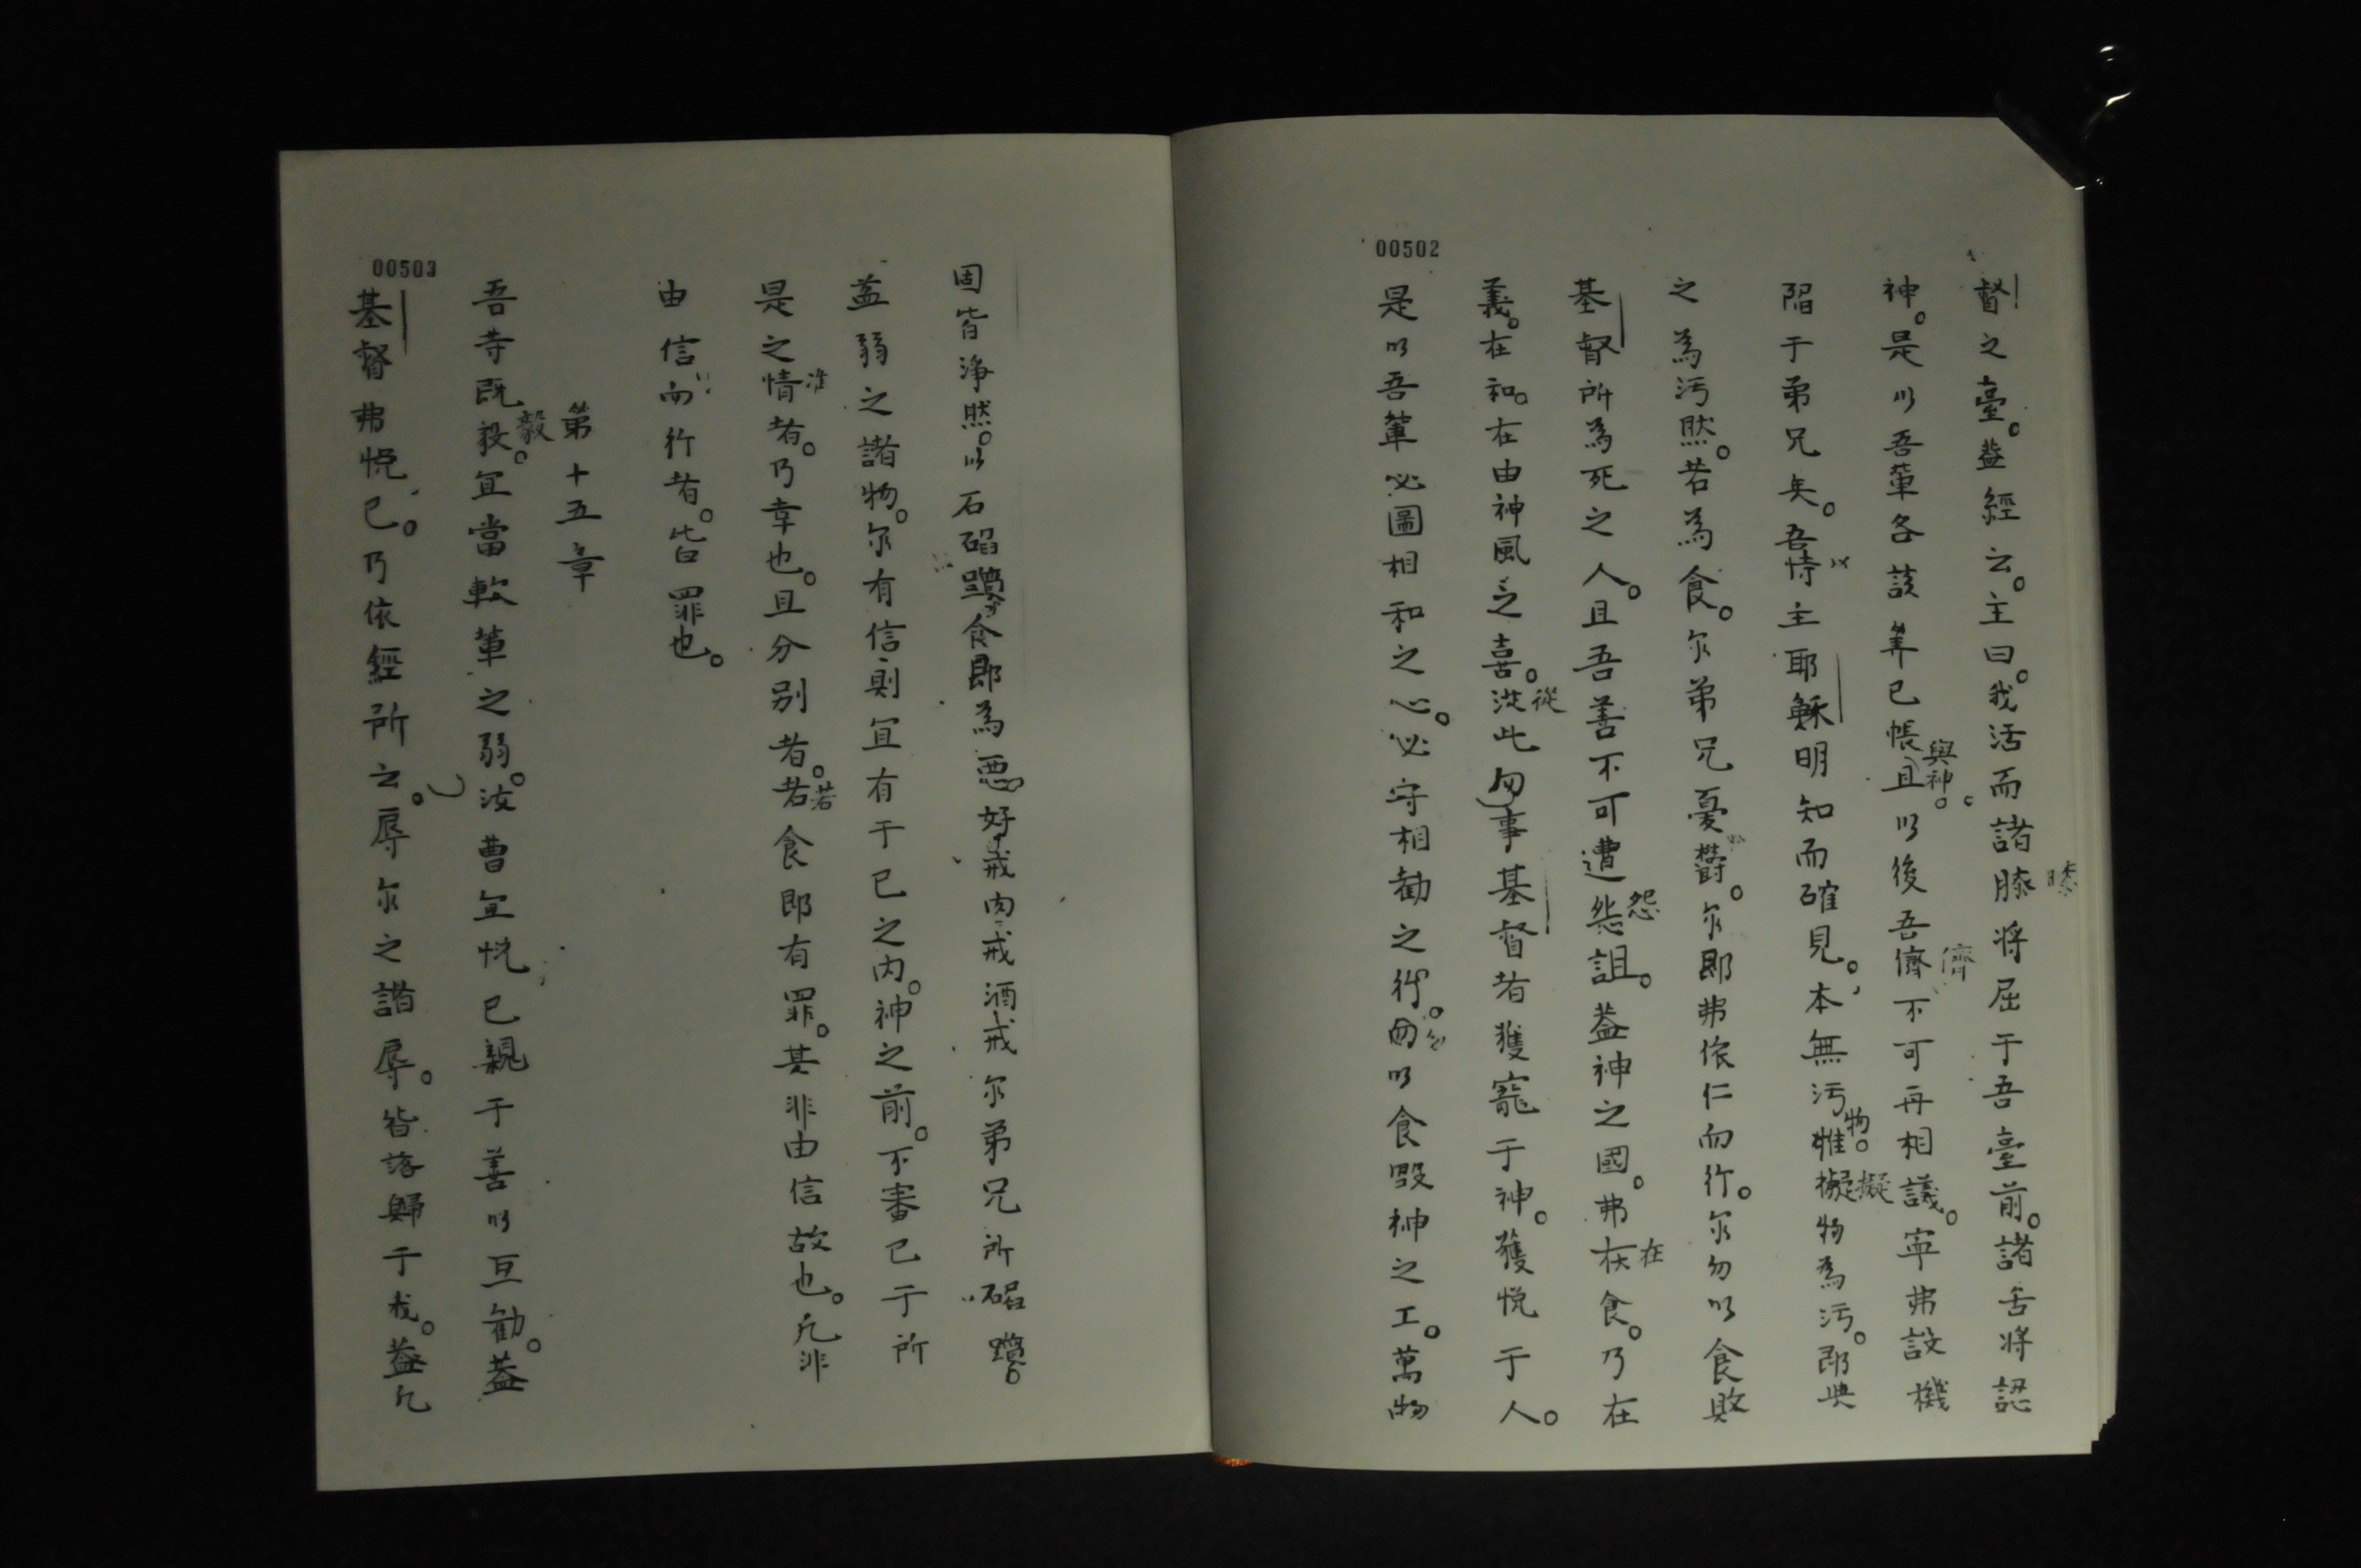 00502
督之臺。蓋經云。主曰。我活而諸膝將屈于吾臺前。諸舌將認
膝
神。是以吾輩各該筭已帳且以後吾儕不可再相議。寧弗設機
與神。
儕
陷于弟兄矣。吾恃主耶穌明知而確見。本無污惟擬物為污。即與
物。
擬
之為污然。若為食。尔弟兄憂欝。尔即弗依仁而行。尔勿以食敗
基督所為死之人。且吾善不可遭怨詛。蓋神之國。弗在食。乃在
怨
在
義。在和。在由神風之喜。從此勿事基督者獲寵于神。獲悅于人。
從
是以吾輩必圖相和之心。必守相勸之行。勿以食毀神之工。萬物
00503
固皆淨然。以石磖躓食即為惡好戒肉戒酒戒尔弟兄所磖躓。
蓋弱之諸物。尔有信則宜有于已之內。神之前。不審已于所
是之情者。乃幸也。且分别者。若食即有罪。其非由信故也。凡非
准
若
由信而行者。皆罪也。
第十五章
吾等既毅。宜當軟輩之弱。汝曹宜悅已親于善以互勸。蓋
毅
基督弗悅已。乃依經所云。辱尔之諸辱。皆落歸于我。蓋凡